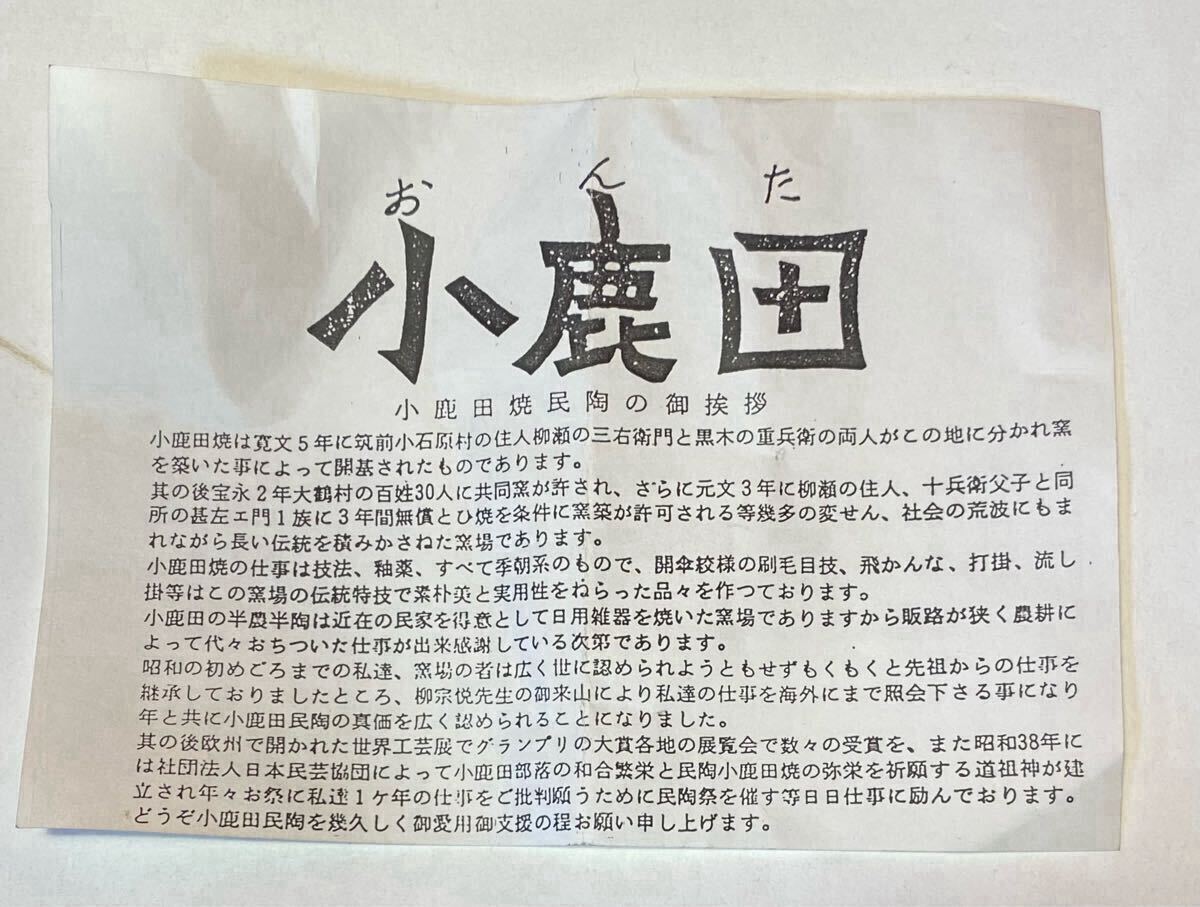 おんた
小鹿田
小鹿田焼民陶の御挨拶
小鹿田焼は寛文5年に筑前小石原村の住人柳瀬の三右衛門と黒木の重兵衛の両人がこの地に分かれ窯
を築いた事によって開基されたものであります。
其の後宝永2年大鶴村の百姓30人に共同窯が許され、さらに元文3年に柳瀬の住人、十兵衛父子と同
所の甚左ェ門1族に3年間無償とひ焼を条件に窯築が許可される等幾多の変せん、社会の荒波にもま
れながら長い伝統を積みかさねた窯場であります。
小鹿田焼の仕事は技法、釉薬、すべて季朝系のもので、開傘絞様の刷毛目技、飛かんな、打掛、流し
掛等はこの窯場の伝統特技で素朴美と実用性をねらった品々を作つております。
小鹿田の半農半陶は近在の民家を得意として日用雑器を焼いた窯場でありますから販路が狭く農耕に
よって代々おちついた仕事が出来感謝している次第であります。
昭和の初めごろまでの私達、窯場の者は広く世に認められようともせずもくもくと先祖からの仕事を
継承しておりましたところ、柳宗悦先生の御来山により私達の仕事を海外にまで照会下さる事になり
年と共に小鹿田民陶の真価を広く認められることになりました。
其の後欧州で開かれた世界工芸展でグランプリの大賞各地の展覧会で数々の受賞を、また昭和38年に
は社団法人日本民芸協団によって小鹿田部落の和合繁栄と民陶小鹿田焼の弥栄を祈願する道祖神が建
立され年々お祭に私達1ケ年の仕事をご批判願うために民陶祭を催す等日日仕事に励んでおります。
どうぞ小鹿田民陶を幾久しく御愛用御支援の程お願い申し上げます。